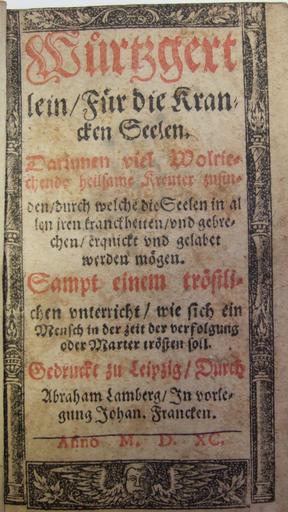 Wůrtzgert
lein/Für die Kran-
cken Seelen.
Darinnen viel Wolrie-
chende heilsame Kreuter zufin-
den/durch welche die Seelen in al
len jren kranckheiten/vnd gebre-
chen/erquickt vnd gelabet
werden mögen.
Sampt einem tröstli-
chen vnterricht/ wie sich ein
Mensch in der zeit der verfolgung
oder Marter trösten soll.
Gedruckt zu Leipzig/ Durch
Abraham Lamberg/ In vorle-
gung Johan. Francken.
Anno M. D. XC.